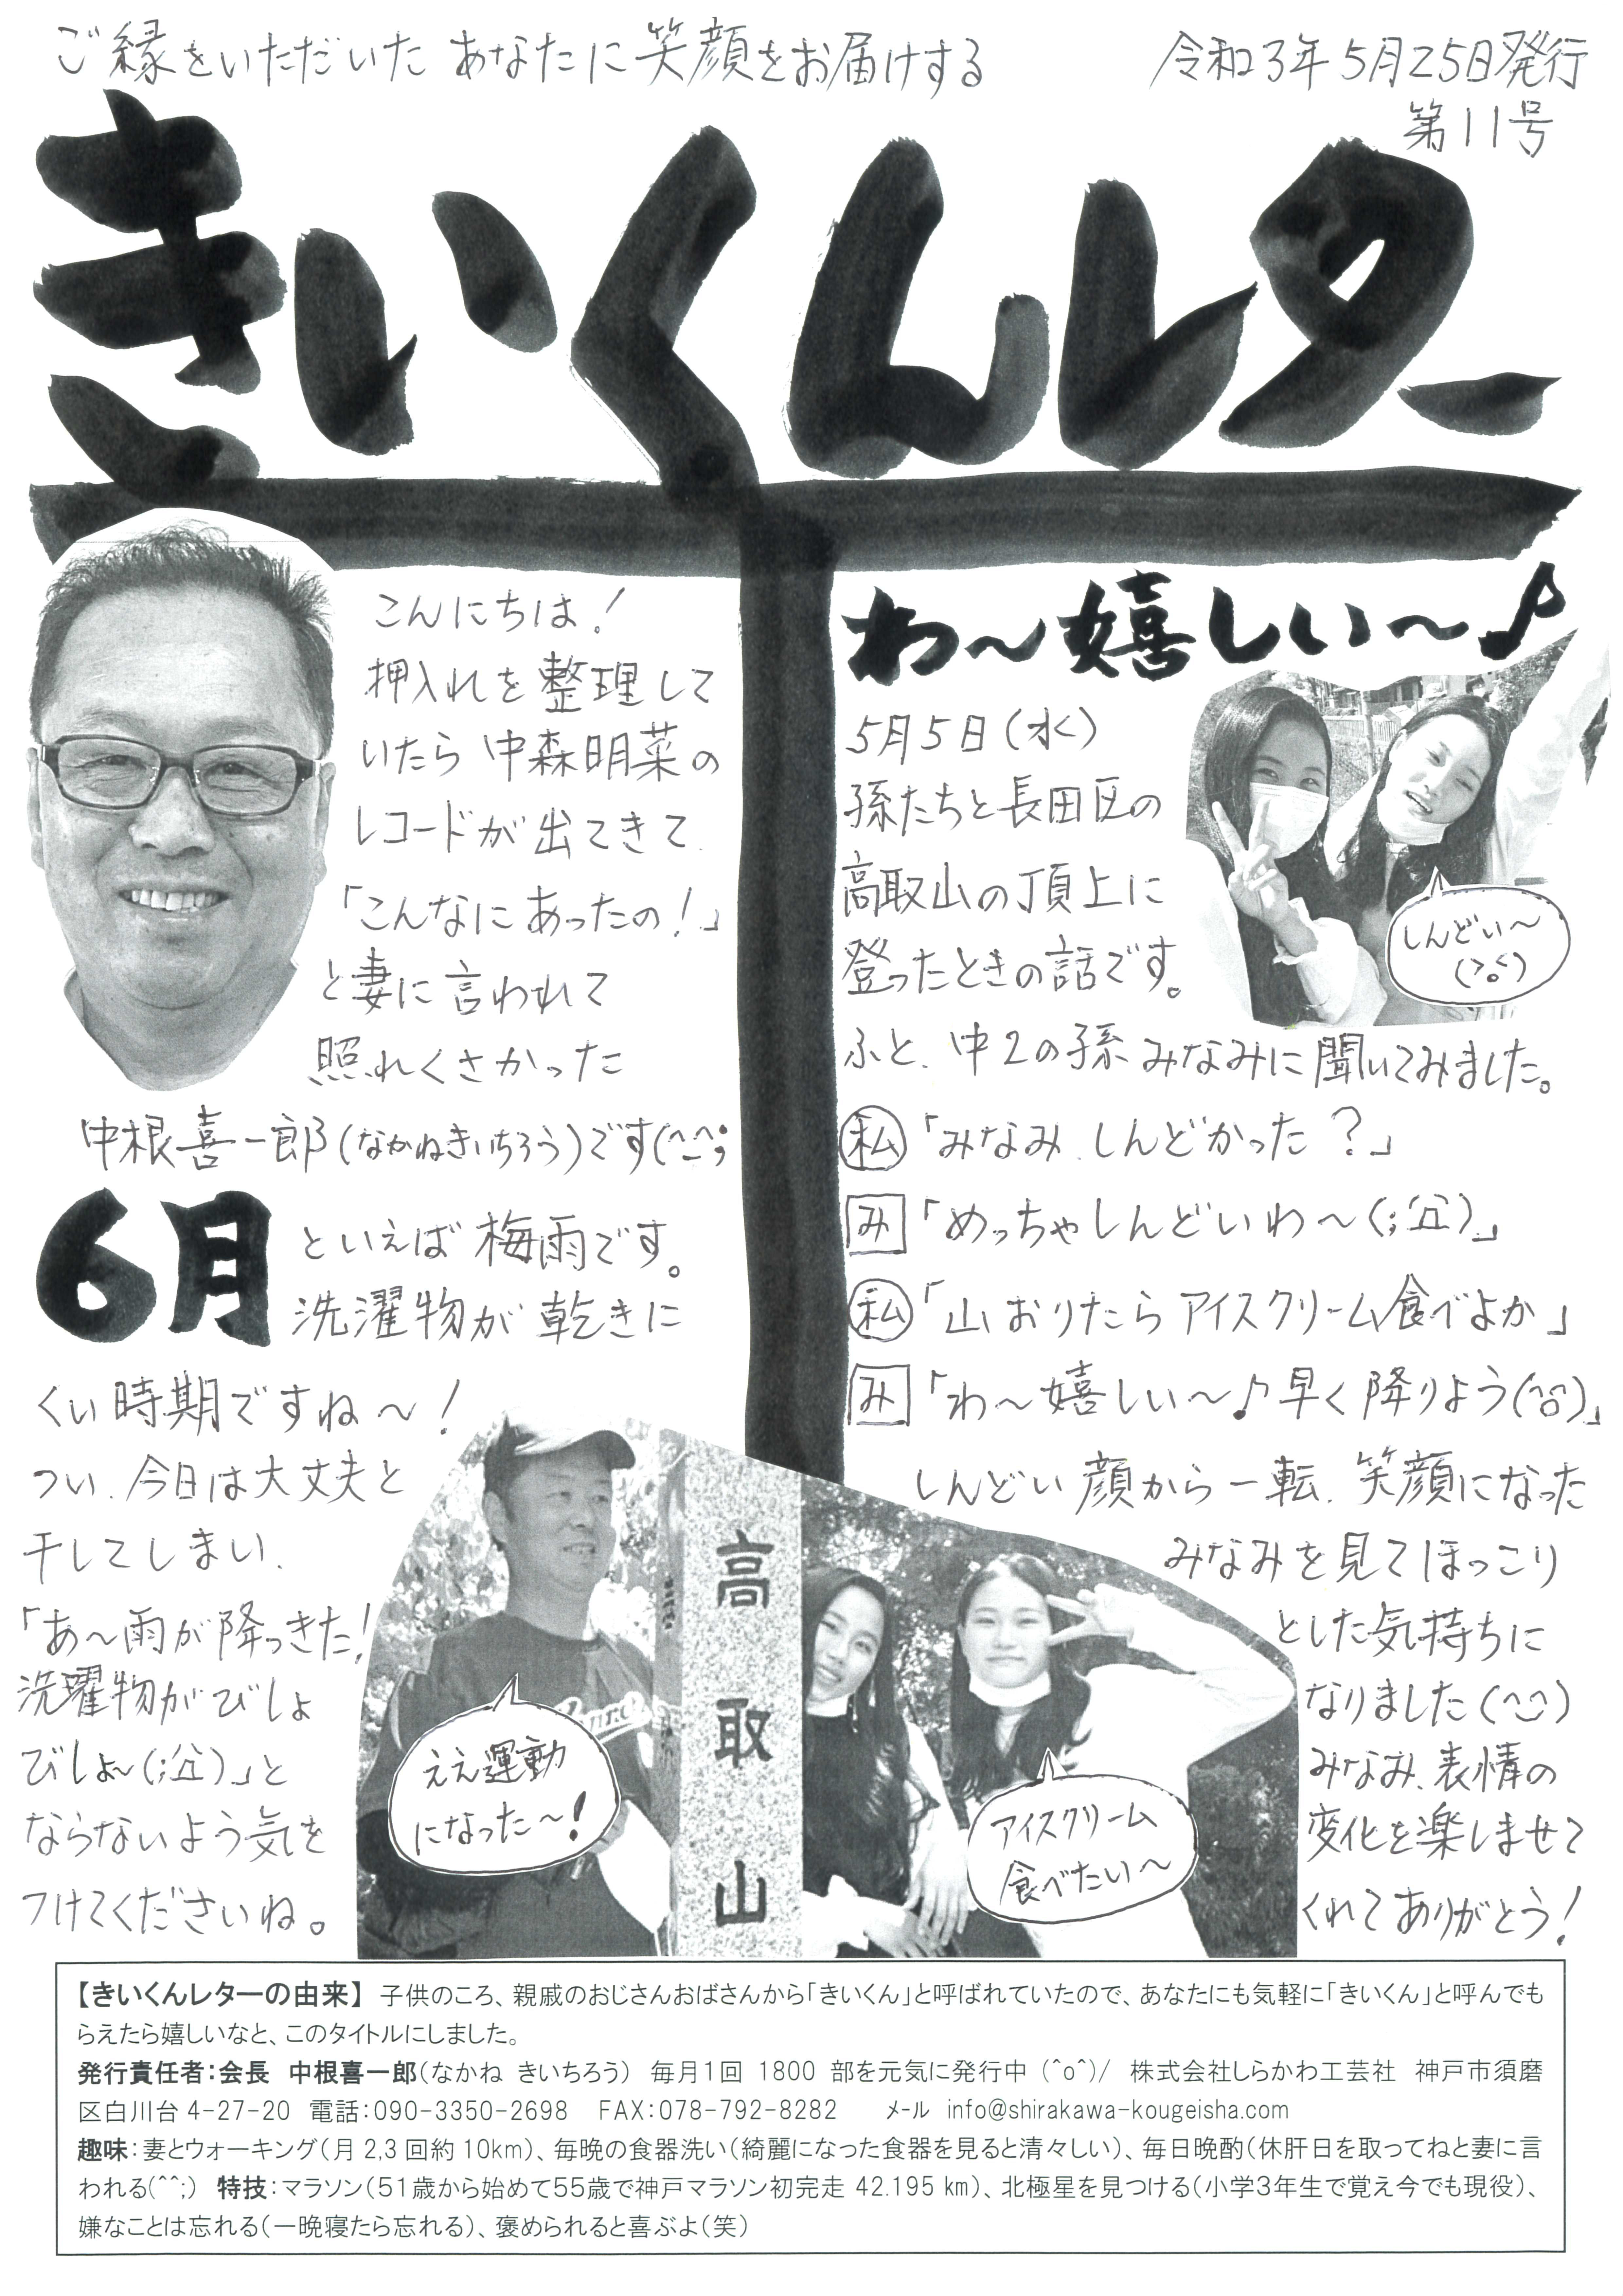 ご縁をいただいた あなたに笑顔をお届けする
令和3年5月25日発行
第11号
きいくんレター
こんにちは!
押入れを整理して
いたら中森明菜の
レコードが出てきて、
「こんなにあったの!」
と妻に言われて
照れくさかった
中根喜一郎(なかねきいちろう)です(^_^;
6月
といえば梅雨です。
洗濯物が乾きに
くい時期ですね〜!
つい、今日は大丈夫と
干してしまい、
「あ〜雨が降っきた!
洗濯物がびしょ
びしょ〜(;公)」と
ならないよう気を
つけてくださいね。
わ〜嬉しい〜♪
5月5日(水)
孫たちと長田区の
高取山の頂上に
登ったときの話です。
しんどい〜
(>。<)
ふと、中2の孫みなみに聞いてみました。
私「みなみ、しんどかった?」
み「めっちゃしんどいわ〜(;公)」
私「山おりたらアイスクリーム食べよか」
み「わ〜嬉しい〜♪早く降りよう(^o^)」
しんどい顔から一転、笑顔になった
みなみを見てほっこり
とした気持ちに
なりました(^_^)
みなみ、表情の
変化を楽しませて
くれてありがとう!
高取山
ええ運動
になった〜!
アイスクリーム
食べたい〜
【きいくんレターの由来】 子供のころ、親戚のおじさんおばさんから「きいくん」と呼ばれていたので、あなたにも気軽に「きいくん」と呼んでも
らえたら嬉しいなと、このタイトルにしました。
発行責任者:会長 中根喜一郎(なかね きいちろう) 毎月1回 1800 部を元気に発行中 (^o^)/ 株式会社しらかわ工芸社 神戸市須磨
区白川台 4-27-20 電話:090-3350-2698 FAX:078-792-8282 メール info@shirakawa-kougeisha.com
趣味:妻とウォーキング(月 2,3 回約 10km)、毎晩の食器洗い(綺麗になった食器を見ると清々しい)、毎日晩酌(休肝日を取ってねと妻に言
われる(^^;) 特技:マラソン(51歳から始めて55歳で神戸マラソン初完走 42.195 km)、北極星を見つける(小学3年生で覚え今でも現役)、
嫌なことは忘れる(一晩寝たら忘れる)、褒められると喜ぶよ(笑)